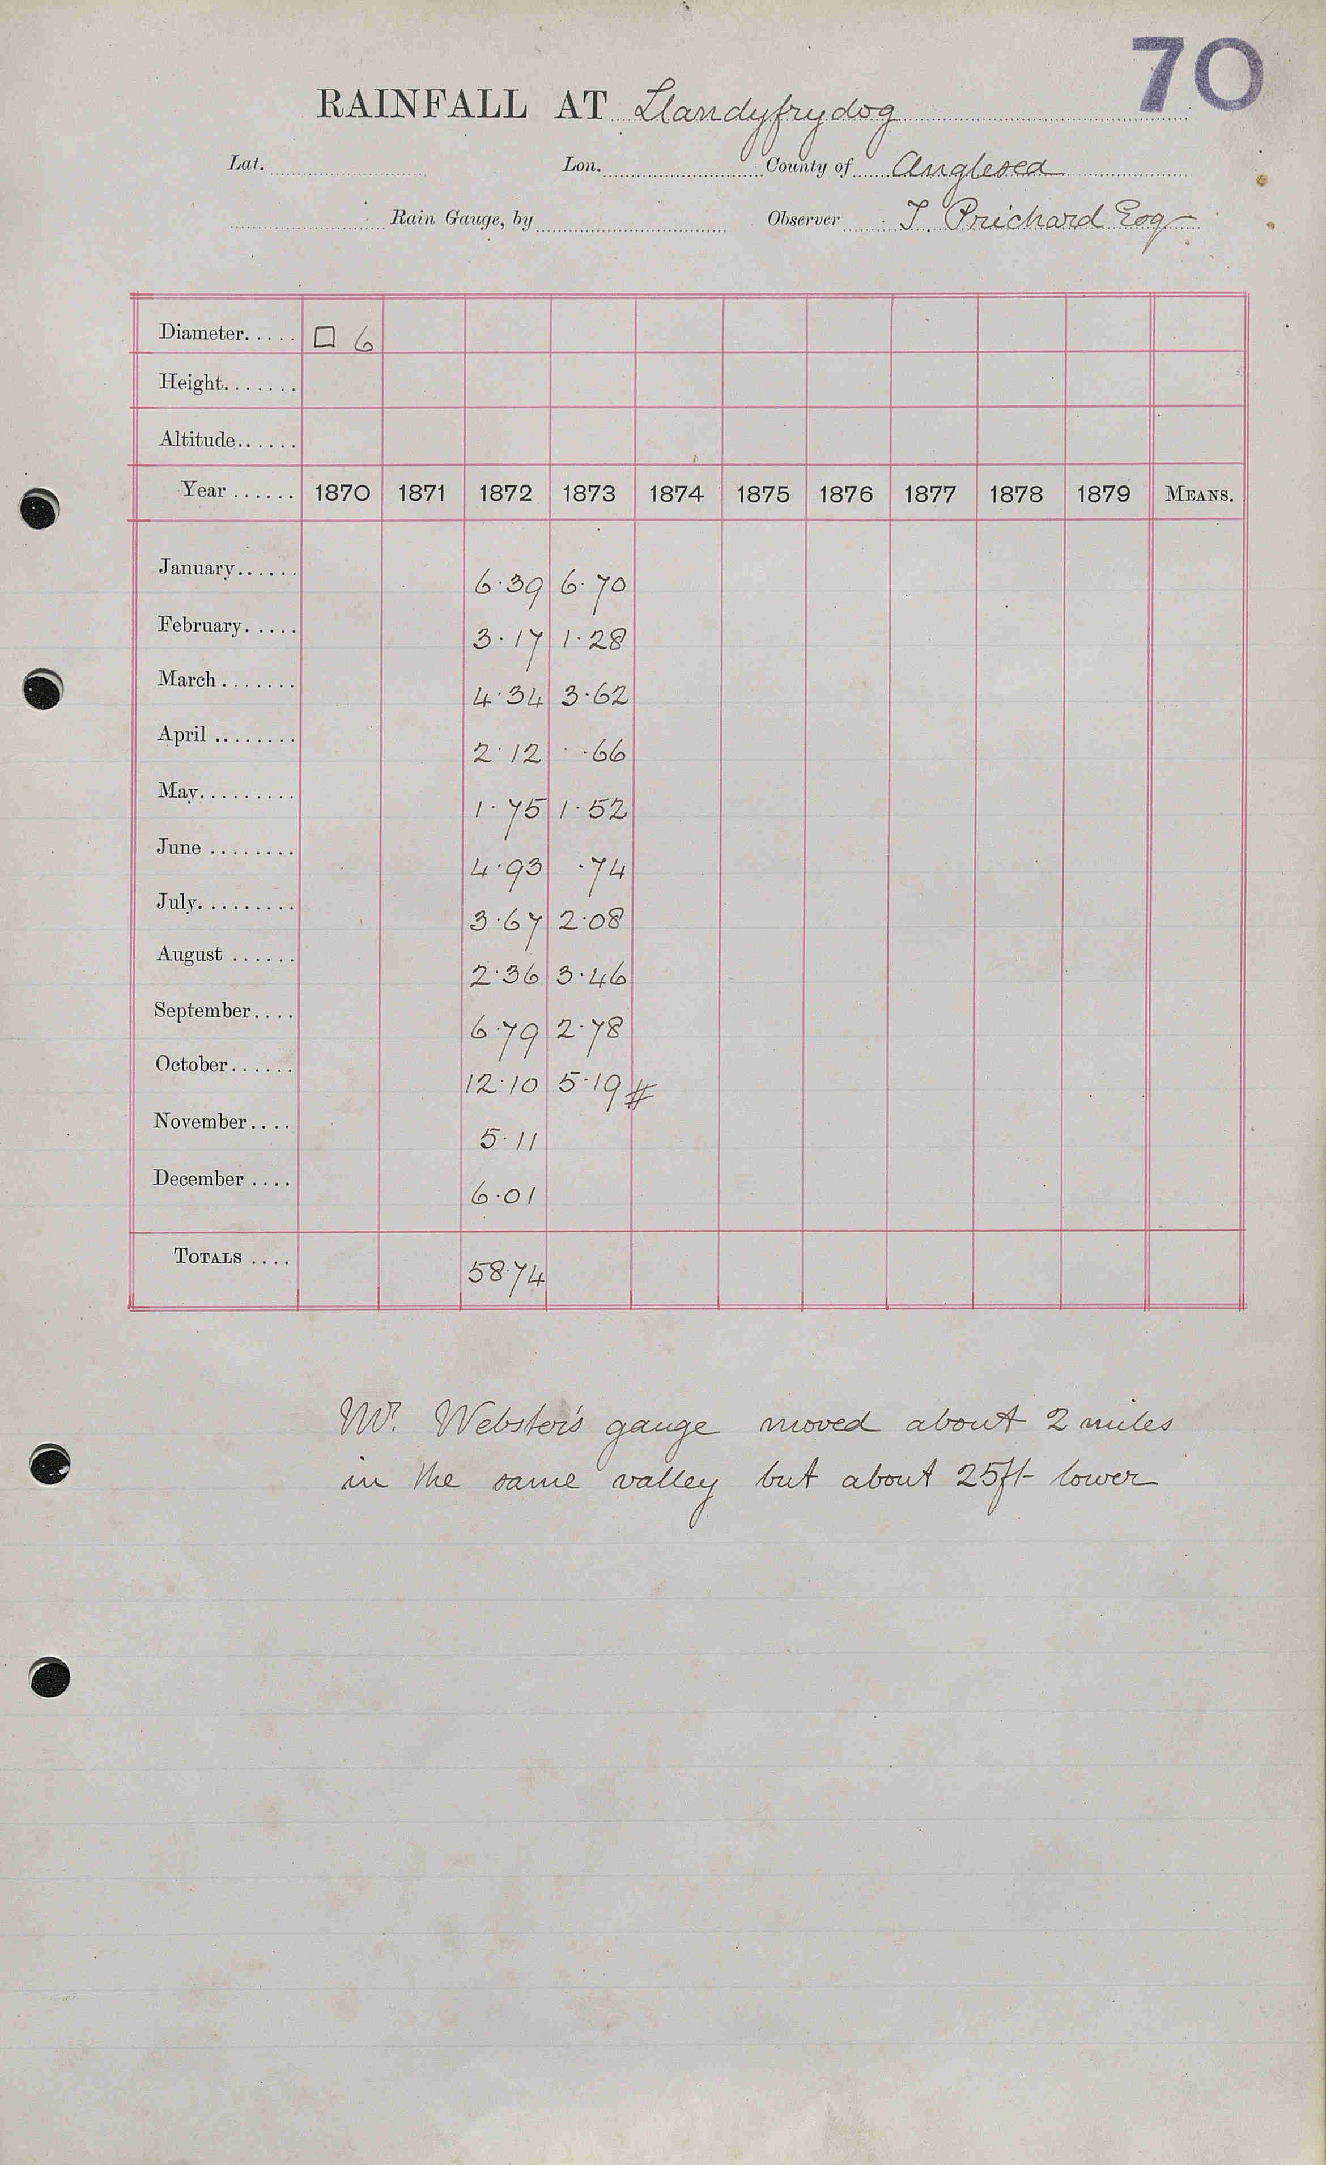 70
RAINFALL AT Llandyfrydog
Lat. Lon. County of Anglesea
Rain Gauge, by Observer T. Prichard Esq
Diameter..... □ 6
Height.......
Altitude......
Year ...... 1870 1871 1872 1873 1874 1875 1876 1877 1878 1879 MEANS.
January...... 6.39 6.70
February..... 3.17 1.28
March ....... 4.34 3.62
April ........ 2.12 .66
May......... 1.75 1.52
June ........ 4.93 .74
July......... 3.67 2.08
August ...... 2.36 3.46
September.... 6.79 2.78
October...... 12.10 5.19 #
November.... 5.11
December .... 6.01
TOTALS .... 58.74
Mr. Webster's gauge moved about 2 miles
in the same valley but about 25ft lower